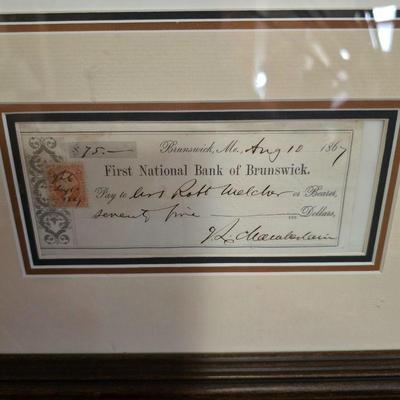 $75.— Brunswick, Me., Aug 10 1867
First National Bank of Brunswick.
Pay to Robt Melcher or Bearer,
seventy five /100 Dollars,
J. L. Chamberlain